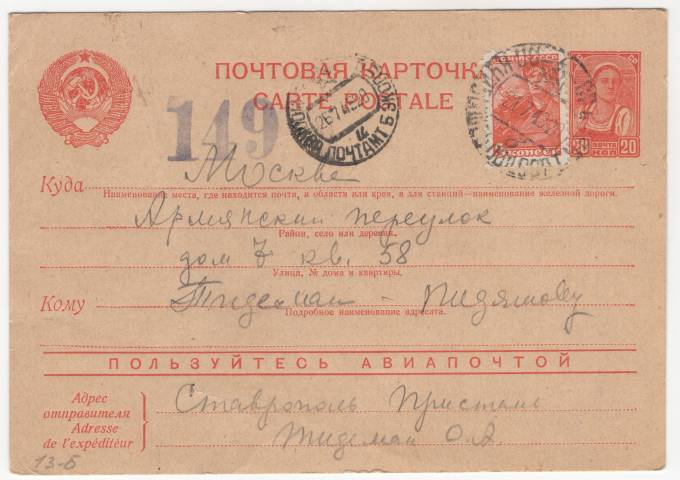 ПОЧТОВАЯ КАРТОЧКА
CARTE POSTALE
149
ПОЧТАМТ
ПОЧТА
20 КОП 20
Куда Москва
Наименование места, где находится почта, и области или края, а для станций—наименование железной дороги.
Армянский переулок
Район, село или деревня.
дом 7 кв. 58
Улица, № дома и квартиры.
Кому Тидеман -
Подробное наименование адресата.
ПОЛЬЗУЙТЕСЬ АВИАПОЧТОЙ
Адрес отправителя
Adresse de l'expéditeur
Ставрополь Пристань
Тидеман О.А.
13-Б